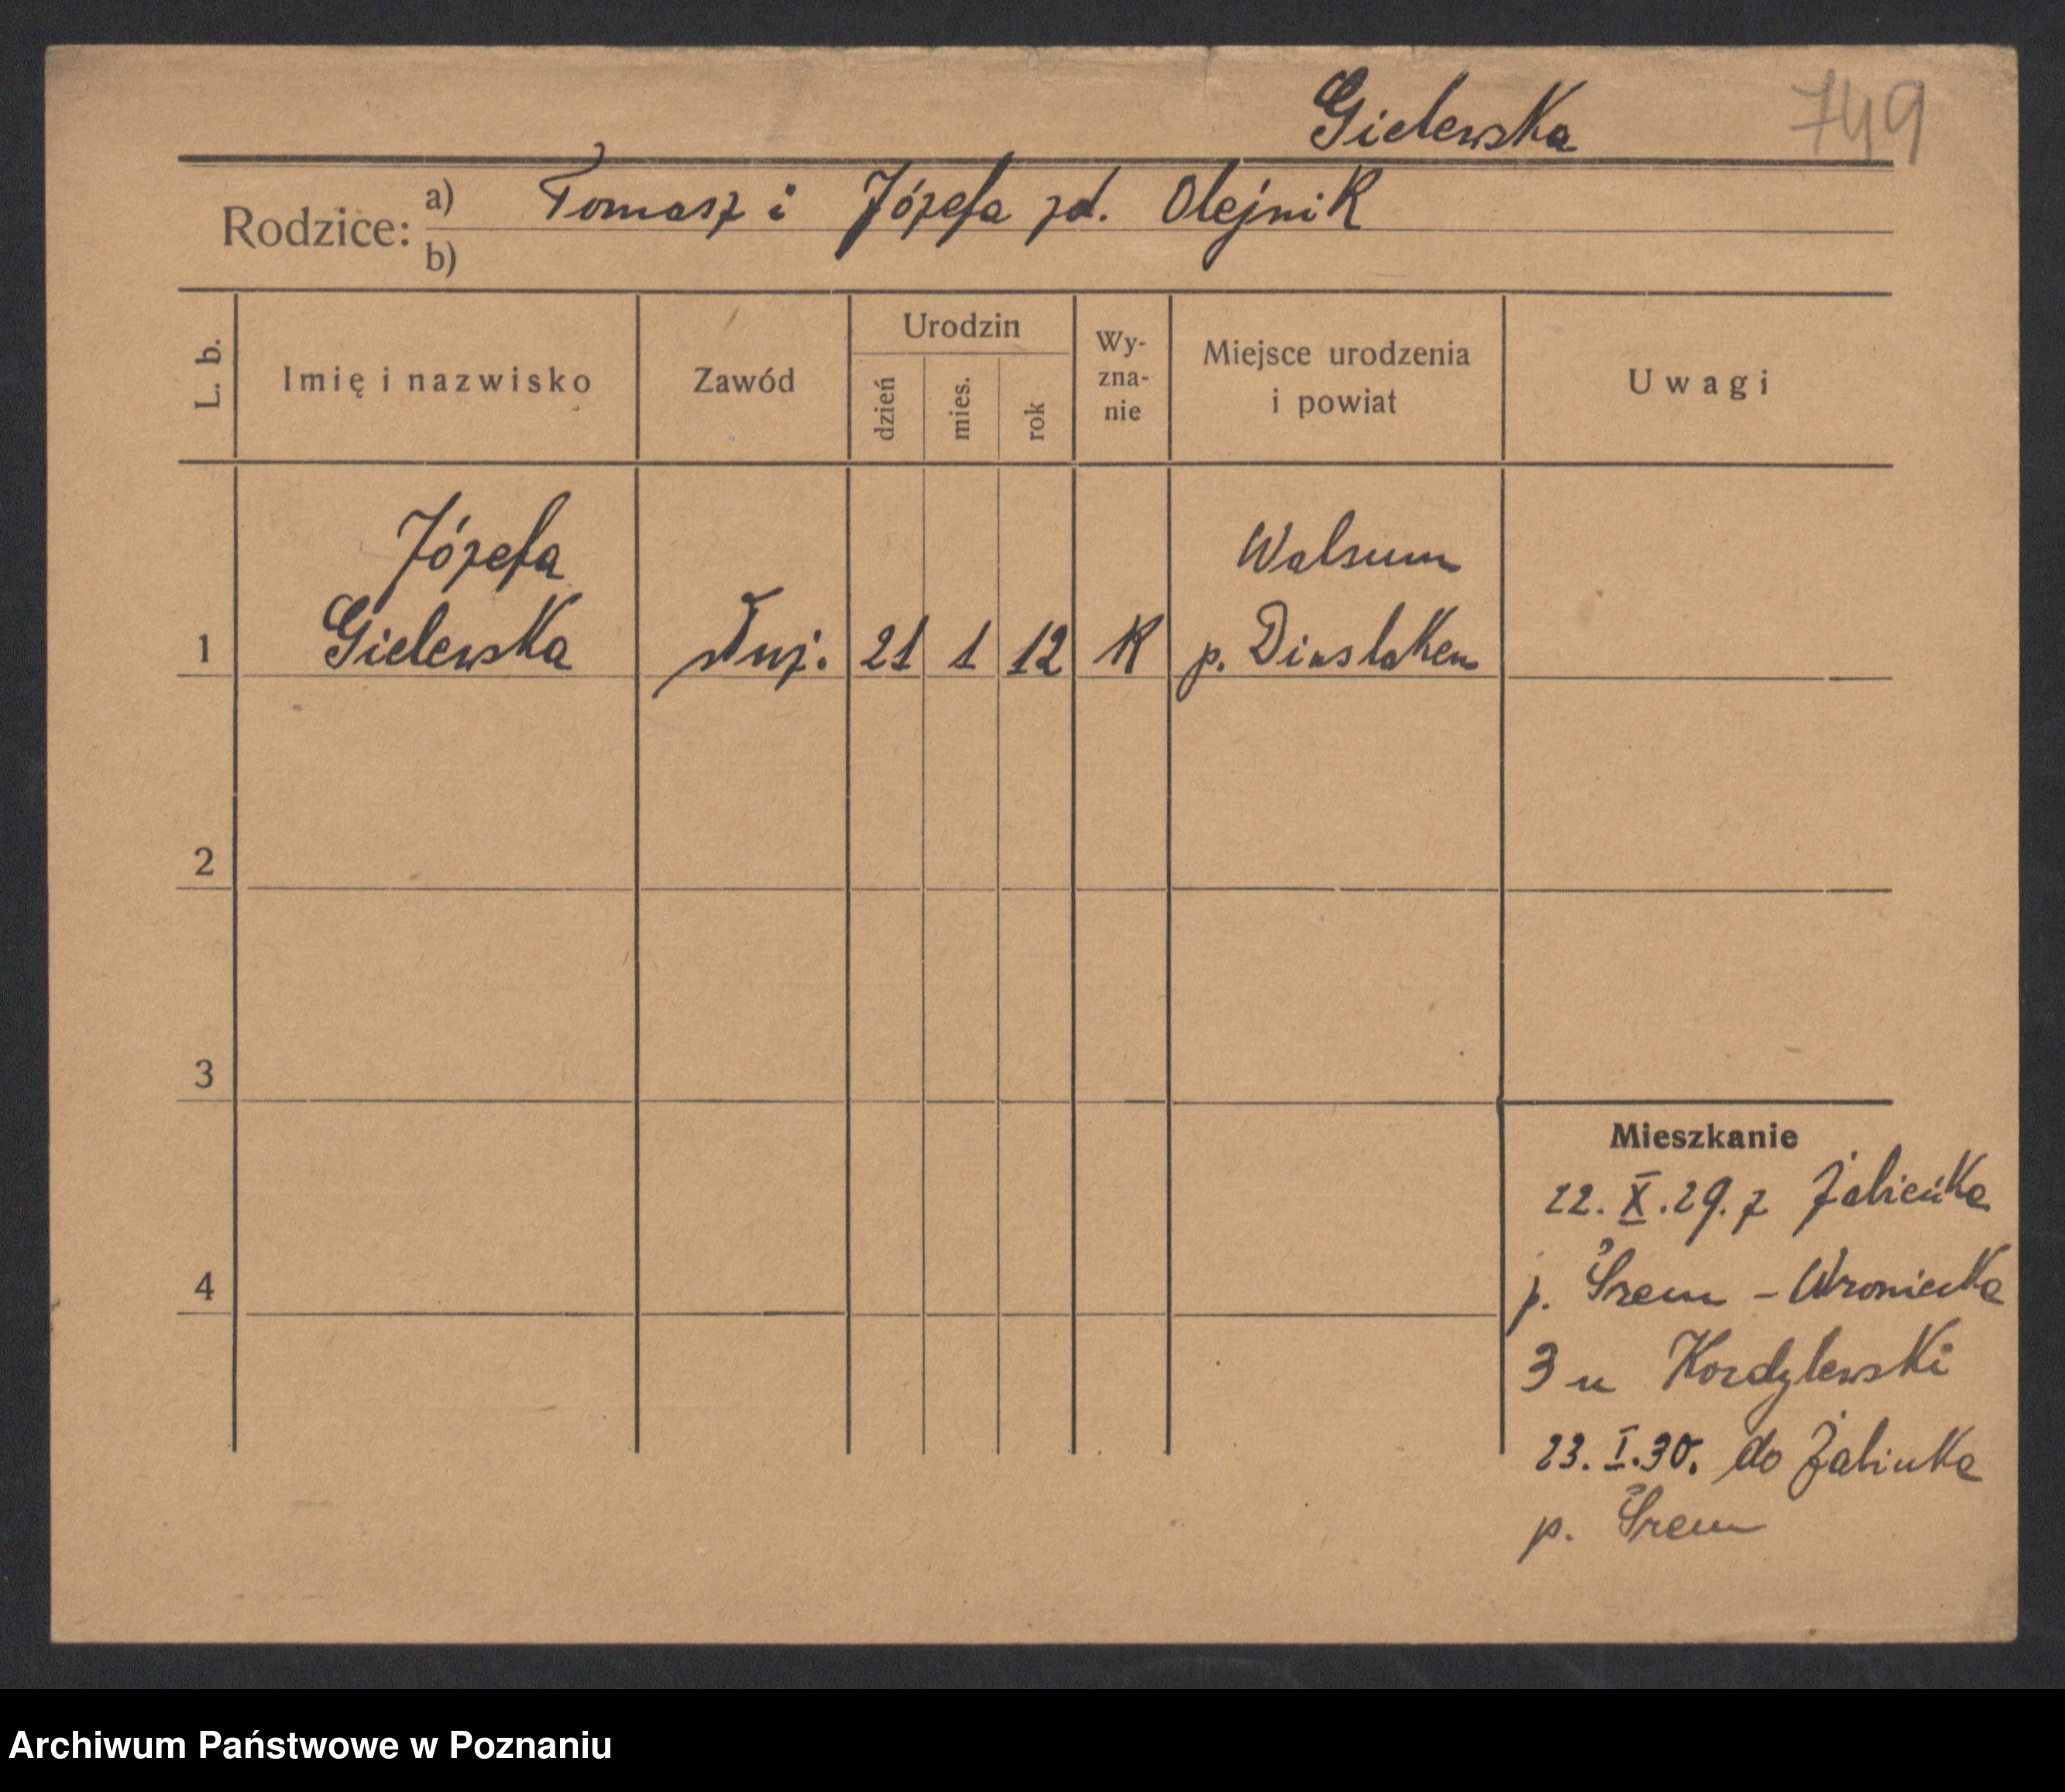 Gielewska 749
Rodzice: a) Tomasz i Józefa zd. Olejnik
b)
L. b. Imię i nazwisko Zawód Urodzin dzień mies. rok Wy-zna-nie Miejsce urodzenia i powiat Uwagi
Józefa Walsum
1 Gielewska służ. 21 1 12 K p. Dinslaken
2
3
Mieszkanie
22. X. 29. z Żabieńka
4 p. Śrem - Wroniecka
3 u Kordylewski
23. I. 30. do Żabinka
p. Śrem
Archiwum Państwowe w Poznaniu